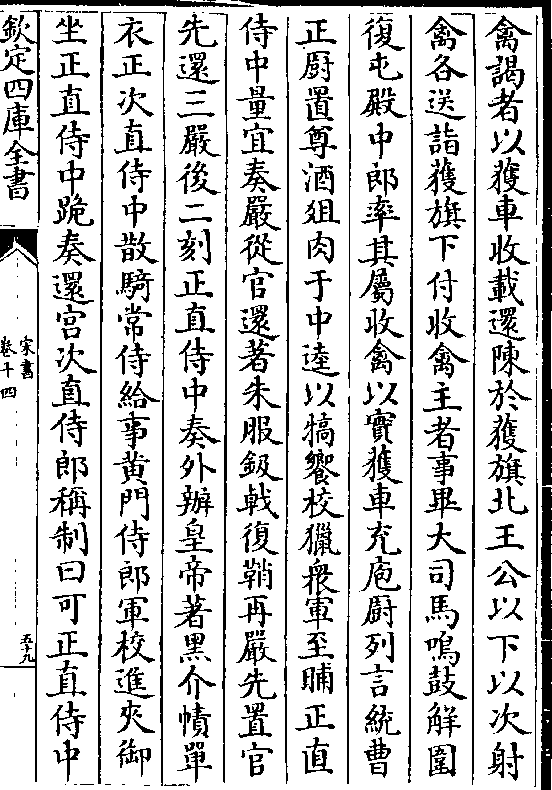 禽謁者以獲車收載還陳於獲旗北王公以下以次射
禽各送詣獲旗下付收禽主者事畢大司馬鳴鼓解圍
復屯殿中郎率其屬收禽以實獲車充庖厨列言統曹
正厨置尊酒俎肉于中逵以犒饗校獵衆軍至晡正直
侍中量宜奏嚴從官還著朱服鈒戟復鞘再嚴先置官
先還三嚴後二刻正直侍中奏外辦皇帝著黑介幘單
衣正次直侍中散騎常侍給事黄門侍郎軍校進夾御
坐正直侍中跪奏還宫次直侍郎稱制曰可正直侍中
欽定四庫全書
宋書
卷十四
五十九